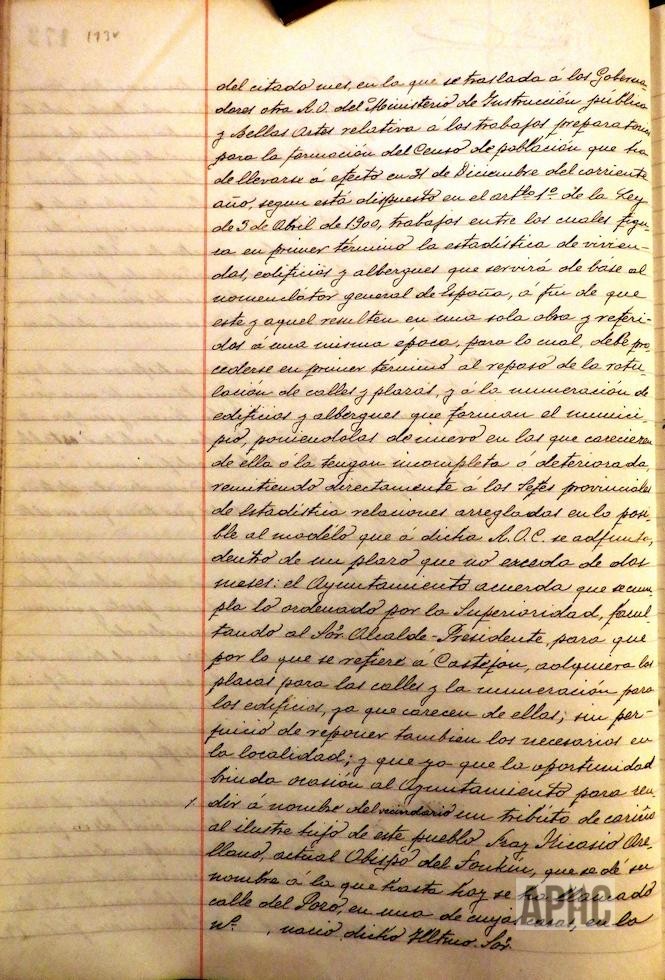 173v
del citado mes, en la que se traslada á los Goberna-
dores otra R.O. del Ministerio de Instrucción pública
y Bellas Artes relativa á los trabajos preparatorios
para la formación del Censo de población que ha
de llevarse á efecto en 31 de Diciembre del corriente
año, segun está dispuesto en el artlo. 1º. de la Ley
de 3 de Abril de 1900, trabajos entre los cuales figu-
ra en primer término la estadística de vivien-
das, edificios y albergues que servirá de base al
nomenclátor general de España, á fin de que
este y aquel resulten en una sola obra y referi-
dos á una misma época, para lo cual, debe pro-
cederse en primer término al repaso de la rotu-
lación de calles y plazas, y á la numeración de
edificios y albergues que forman el munici-
pio, poniendolas de nuevo en las que carecieren
de ella ó la tengan incompleta ó deteriorada,
remitiendo directamente á los Jefes provinciales
de Estadística relaciones arregladas en lo posi-
ble al modelo que á dicha R.O.C. se adjunta,
dentro de un plazo que no exceda de dos
meses: el Ayuntamiento acuerda que se cum-
pla lo ordenado por la Superioridad, facul-
tando al Sór. Alcalde-Presidente, para que
por lo que se refiere á Castejon, adquiera las
placas para las calles y la numeración para
los edificios, ya que carecen de ellas; sin per-
juicio de reponer tambien los necesarios en
la localidad; y que ya que la oportunidad
brinda ocasión al Ayuntamiento para ren-
dir á nombre del vecindario un tributo de cariño
al ilustre hijo de este pueblo Fray Nicasio Are-
llano, actual Obispo del Tonkin, que se dé su
nombre á la que hasta hoy se ha llamado
calle del Pozo, en una de cuyas casas, en la
nº. , nació dicho Illtmo. Sór.
APHC